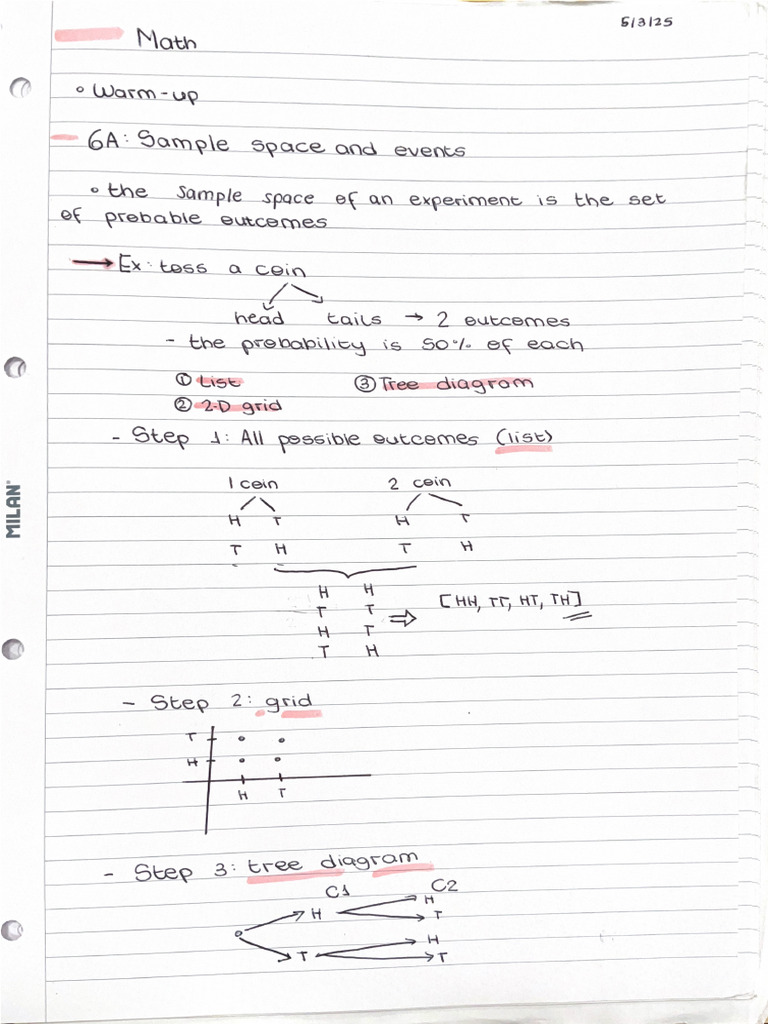 5/3/25
Math
• Warm-up
6A: Sample space and events
• the sample space of an experiment is the set
of probable outcomes
→ Ex: toss a coin
head tails → 2 outcomes
- the probability is 50% of each
① List ③ Tree diagram
② 2-D grid
- Step 1: All possible outcomes (list)
1 coin 2 coin
H T H T
T H T H
H H
T T ⇒ [HH, TT, HT, TH]
H T
T H
MILAN
- Step 2: grid
T
H
H T
- Step 3: tree diagram
C1 C2
H
H T
H
T T